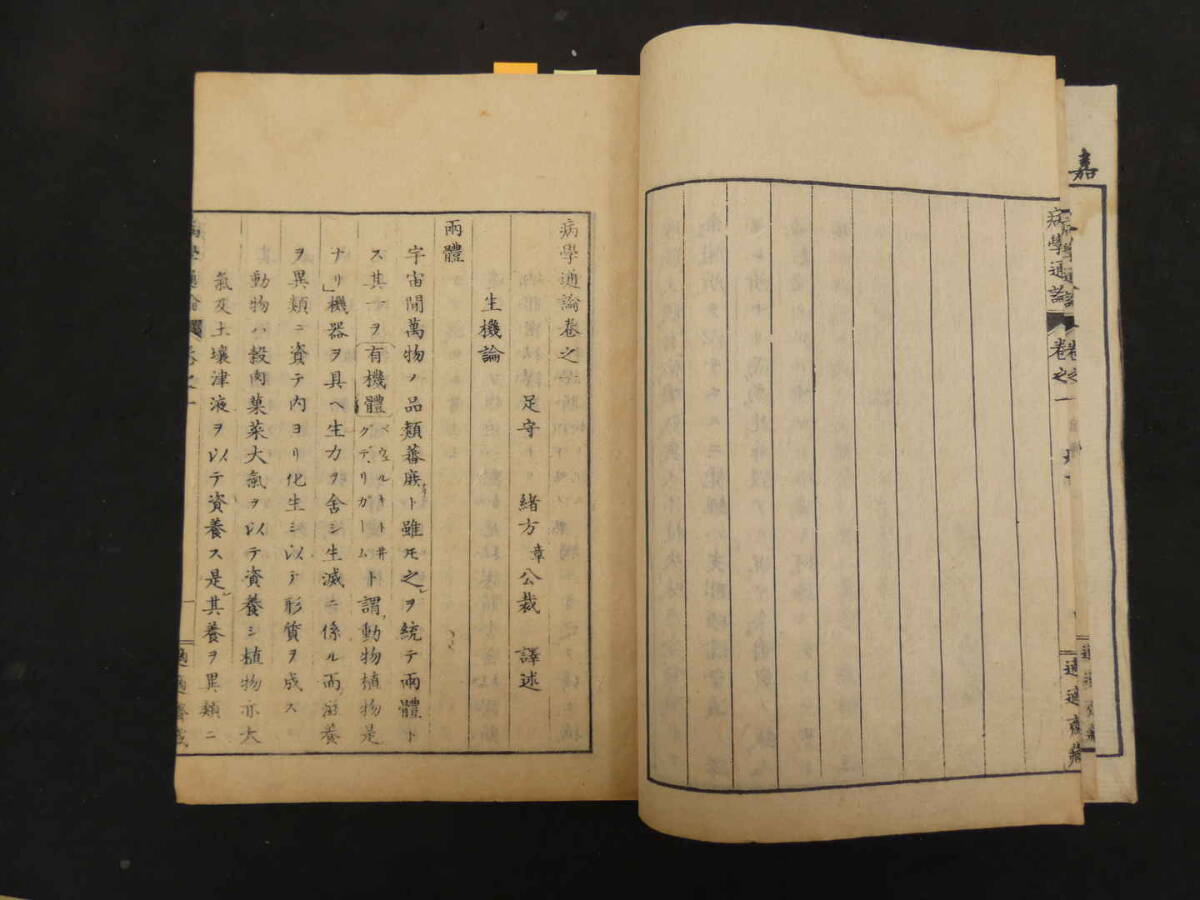 嘉
病學通論
卷之一
適適齋藏
病學通論卷之一
足守 緒方章公裁 譯述
生機論
兩體
宇宙間萬物ノ品類蕃庶ト雖モ之ヲ統テ兩體ト
ス其一ヲ有機體ト謂動物植物是
ナリ機器ヲ具ヘ生力ヲ舍シ生滅ニ係ル而滋養
ヲ異類ニ資テ内ヨリ化生シ以テ形質ヲ成ス
動物ハ穀肉菓菜大氣ヲ以テ資養シ植物亦大
氣及土壤津液ヲ以テ資養ス是其養ヲ異類ニ
病學通論
卷之一
適適齋藏